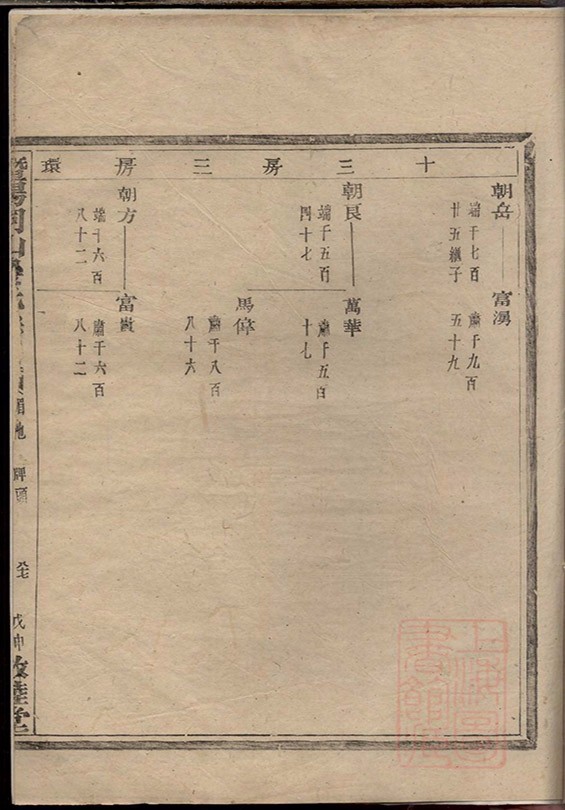 十三房三房環
朝岳 富湧
端千七百 肅千九百
廿五繼子 五十九
朝良 萬華
端千五百 肅千五百
四十七 十七
馬偉
肅千八百
八十六
朝方 富貴
端千六百 肅千六百
八十二 八十二
戊申